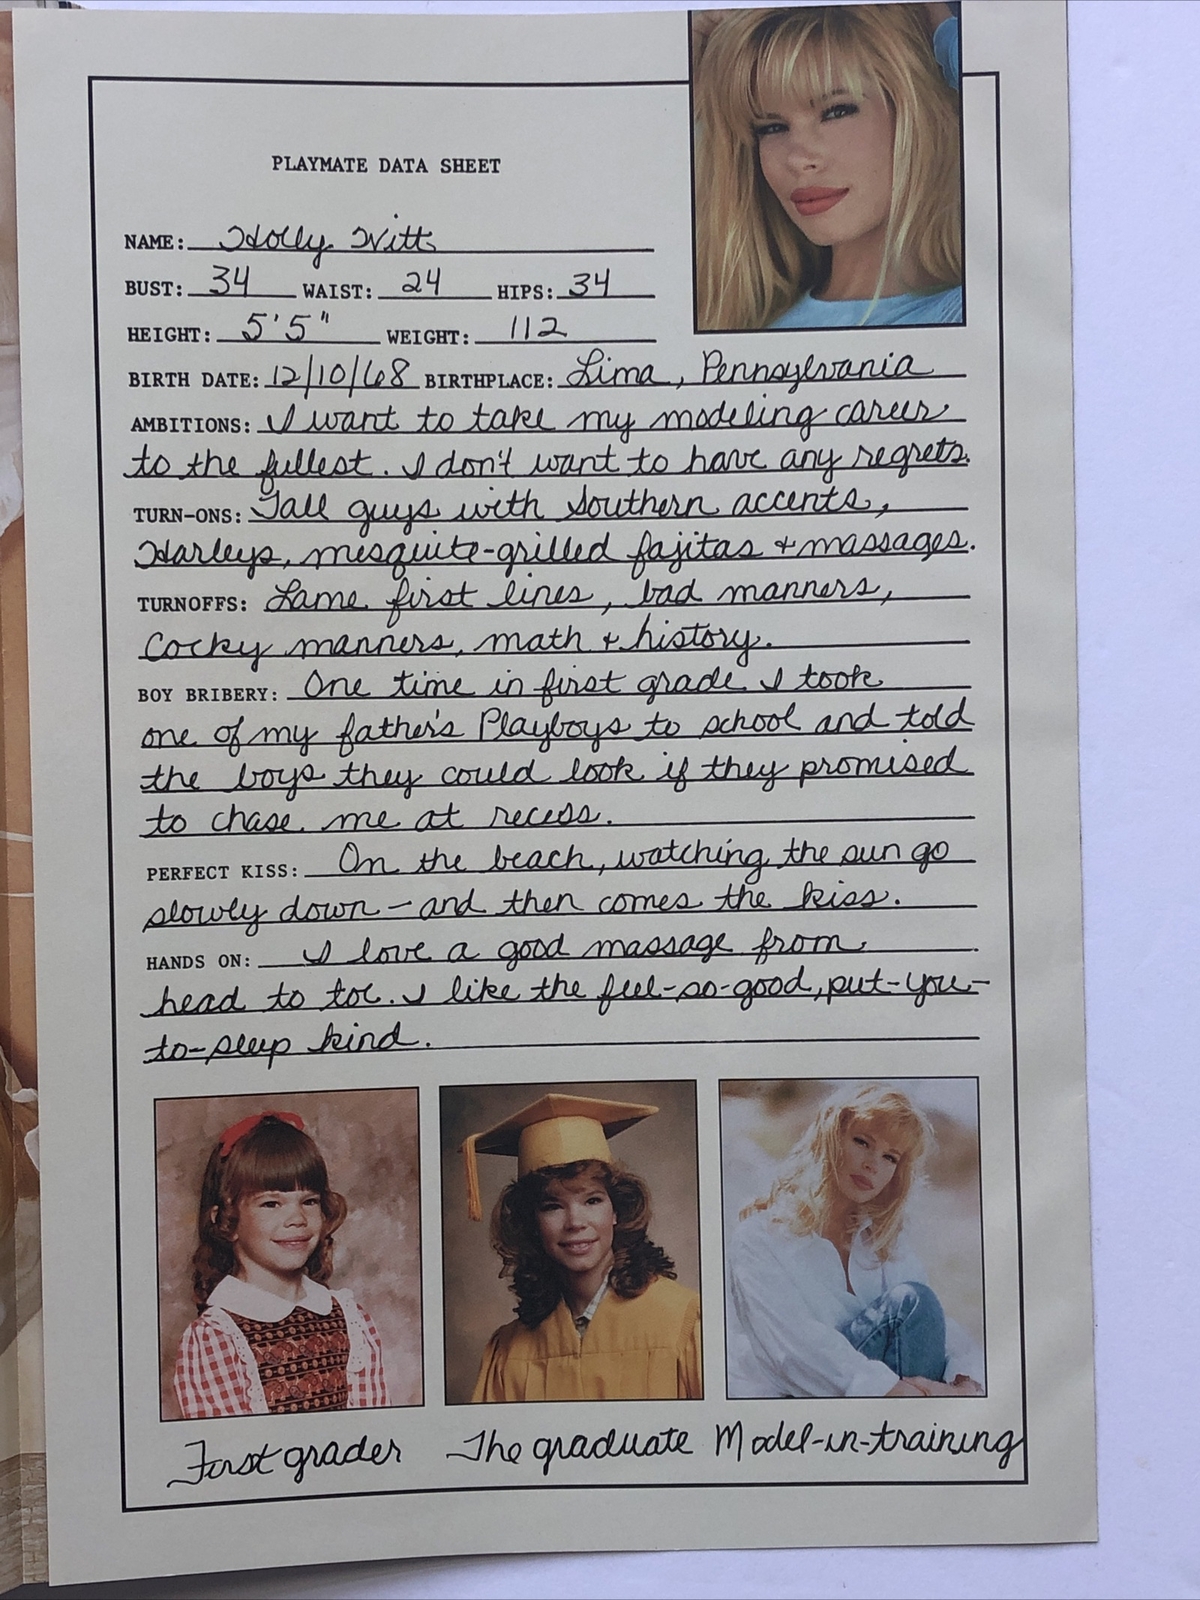 PLAYMATE DATA SHEET
NAME: Holly Witt
BUST: 34 WAIST: 24 HIPS: 34
HEIGHT: 5'5" WEIGHT: 112
BIRTH DATE: 12/10/68 BIRTHPLACE: Lima, Pennsylvania
AMBITIONS: I want to take my modeling career
to the fullest. I don't want to have any regrets.
TURN-ONS: Tall guys with Southern accents,
Harleys, mesquite-grilled fajitas & massages.
TURNOFFS: Lame first lines, bad manners,
Cocky manners, math & history.
BOY BRIBERY: One time in first grade I took
one of my father's Playboys to school and told
the boys they could look if they promised
to chase me at recess.
PERFECT KISS: On the beach, watching the sun go
slowly down - and then comes the kiss.
HANDS ON: I love a good massage from
head to toe. I like the feel-so-good, put-you-
to-sleep kind.
First grader The graduate Model-in-training